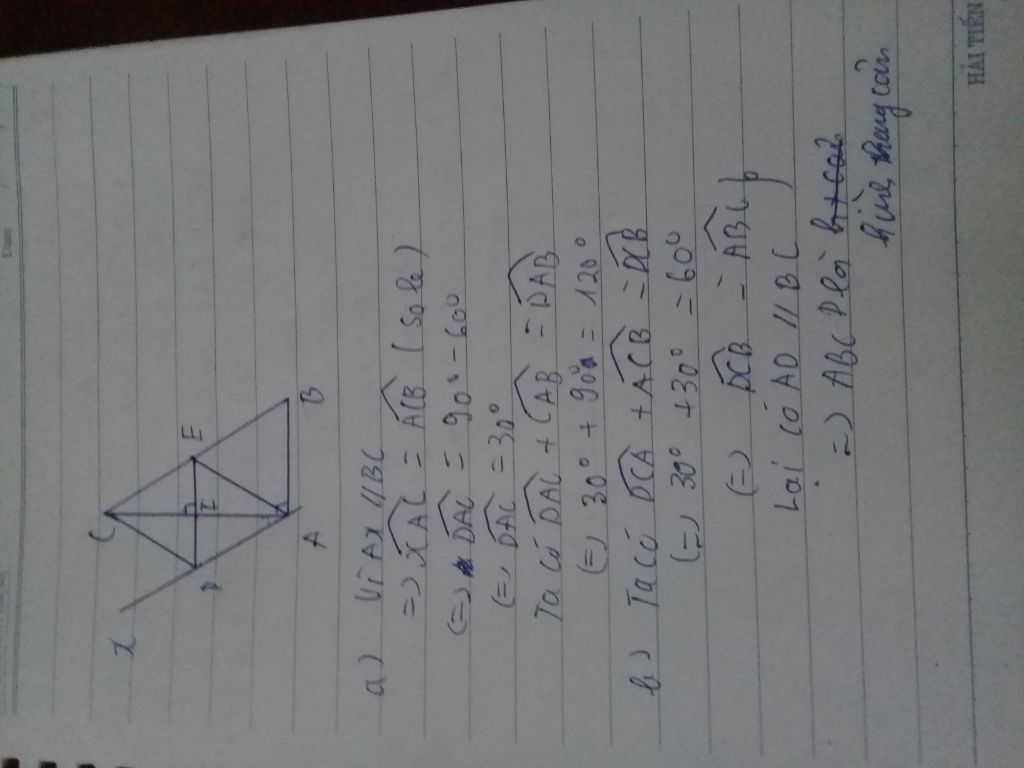 x
C
D
E
I
A
B
a) Vì Ax // BC
=> xAC = ACB (so le)
(=) DAC = 90° - 60°
(=) DAC = 30°
Ta có DAC + CAB = DAB
(=) 30° + 90° = 120°
b) Ta có DCA + ACB = DCB
(=) 30° + 30° = 60°
(=) DCB = ABC }
Lại có AD // BC
=) ABCD là
hình thang cân
HẢI TIẾN